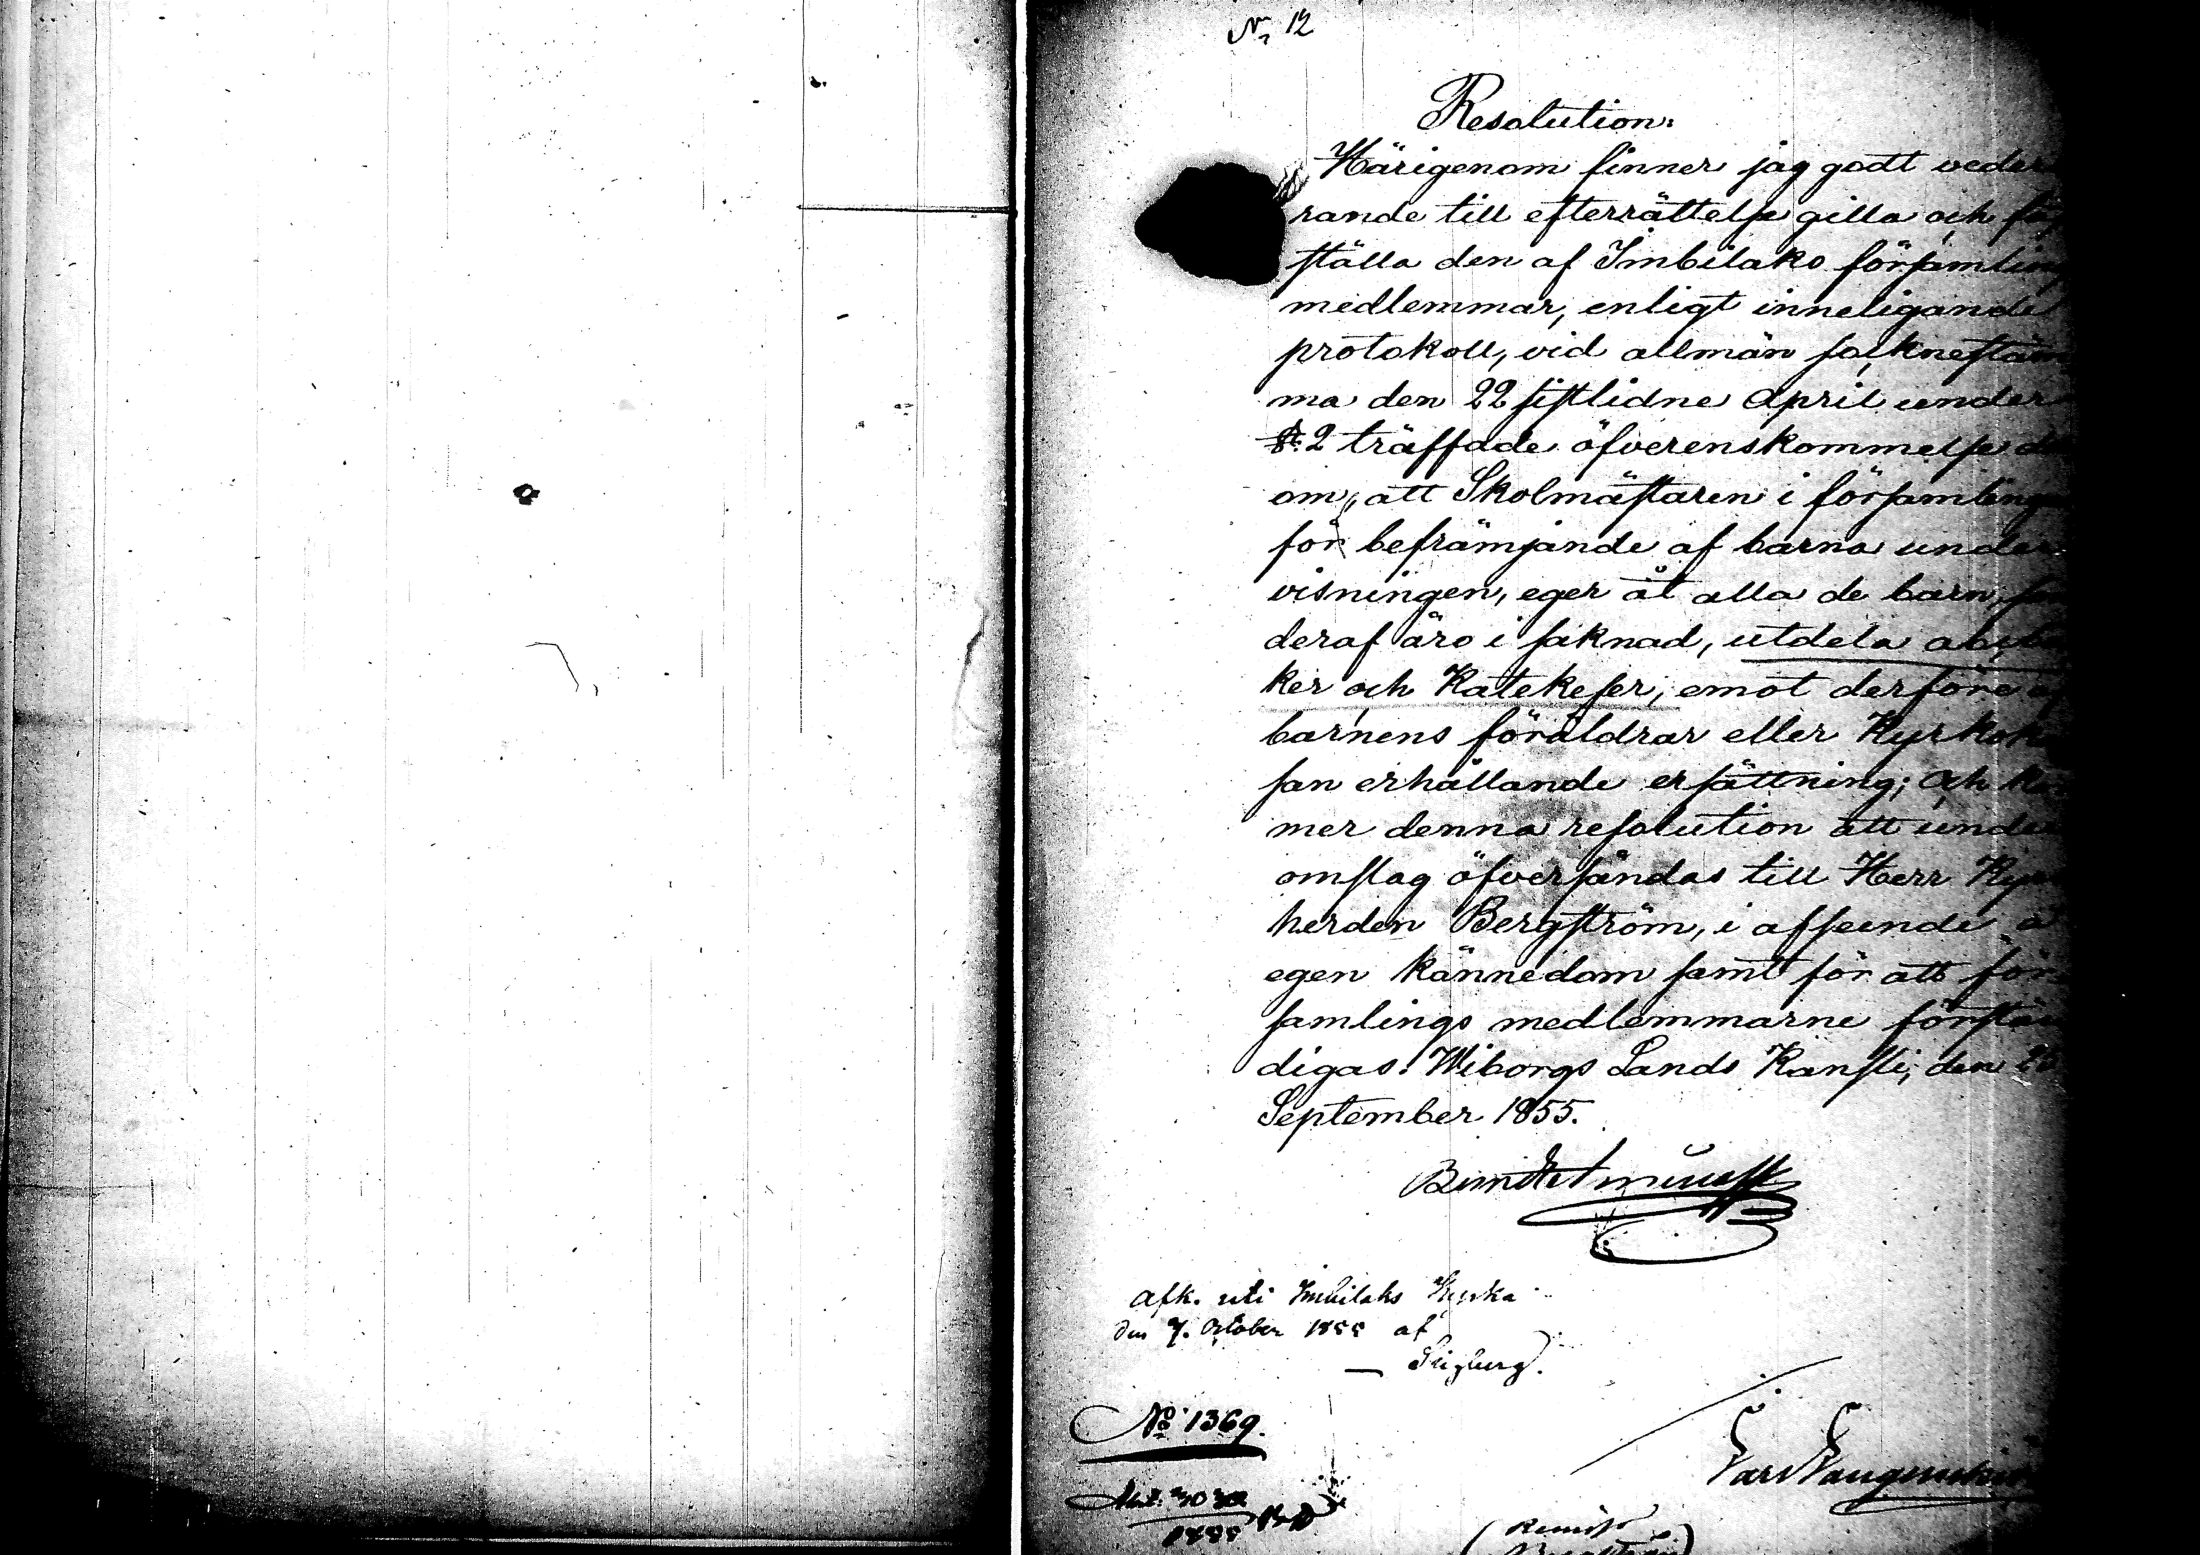 No 12
Resolution:
Härigenom finner jag godt veder
rande till efterrättelse gilla och
ställa den af Imbilaks församling
medlemmar, enligt inneligande
protokoll, vid allmän socknestäm
ma den 22 sistlidne April under
§. 2 träffade öfverenskommelse
om, att Skolmästaren i församlingen
för befrämjande af barna under
visningen, eger åt alla de barn,
deraf äro i saknad, utdela
ker och Katekeser, emot derföre
barnens föräldrar eller Kyrkoka
san erhållande ersättning; och
mer denna resolution att under
omslag öfversändas till Herr Kyr
herden Bergström, i afseende å
egen kännedom samt för att för
samlings medlemmarne förstän
digas. Wiborgs Lands Kansli, den
September 1855.
Afk. uti Imbilaks Kyrka
den 7. October 1855 af
No 1369.
1855